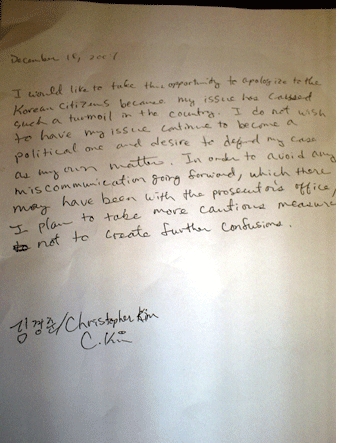 December 18, 2007
I would like to take this opportunity to apologize to the
Korean Citizens because my issue has caused
such a turmoil in the country. I do not wish
to have my issue continue to become a
political one and desire to defend my case
as my own matter. In order to avoid any
miscommunication going forward, which there
may have been with the prosecutors office,
I plan to take more cautious measure
not to create further confusions.
김경준/Christopher Kim
C. Kim